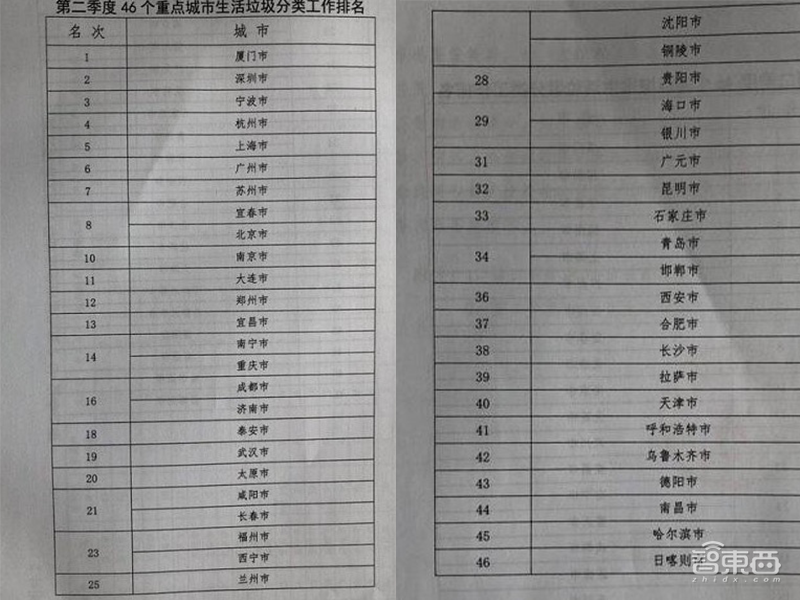 第二季度 46 个重点城市生活垃圾分类工作排名
名 次 城 市
1 厦门市
2 深圳市
3 宁波市
4 杭州市
5 上海市
6 广州市
7 苏州市
8 宜春市
北京市
10 南京市
11 大连市
12 郑州市
13 宜昌市
14 南宁市
重庆市
16 成都市
济南市
18 泰安市
19 武汉市
20 太原市
21 咸阳市
长春市
23 福州市
西宁市
25 兰州市
沈阳市
铜陵市
28 贵阳市
29 海口市
银川市
31 广元市
32 昆明市
33 石家庄市
34 青岛市
邯郸市
36 西安市
37 合肥市
38 长沙市
39 拉萨市
40 天津市
41 呼和浩特市
42 乌鲁木齐市
43 德阳市
44 南昌市
45 哈尔滨市
46 日喀则市
智東西
zhidx.com